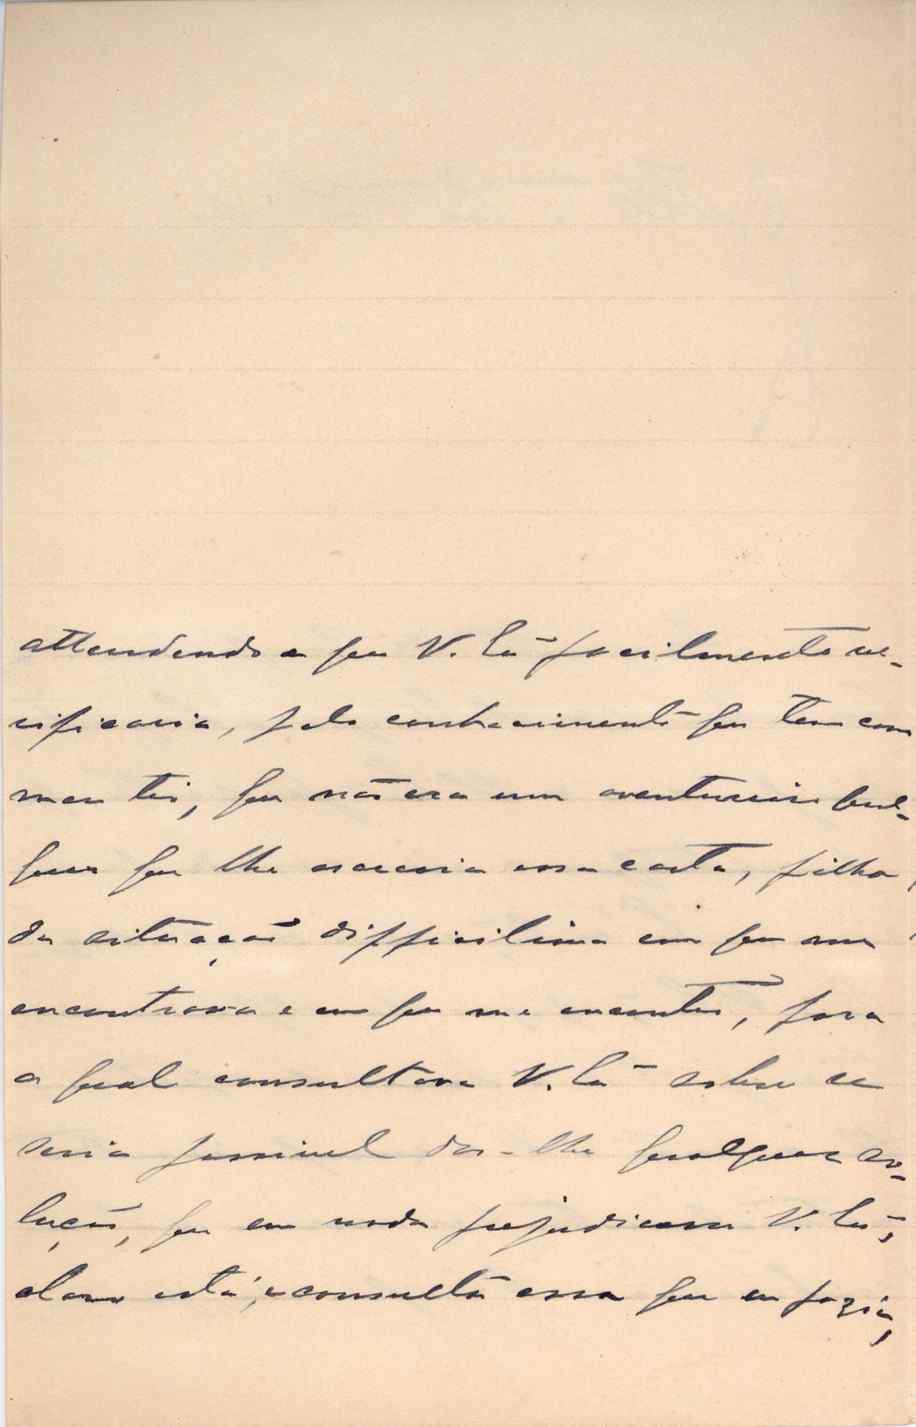 attendendo a que V. Exª facilmente ve-
rificaria, pelo conhecimento que tem com
meu tio, que não era um aventureiro qual-
quer que lhe escrevia essa carta, filha
da situação difficilima em que me
encontrava e em que me encontro, para
a qual consultava V. Exª sobre se
seria possivel dar-lhe qualquer so-
lução, que em nada prejudicasse V. Exª,
claro está, e consulta essa que eu fazia,